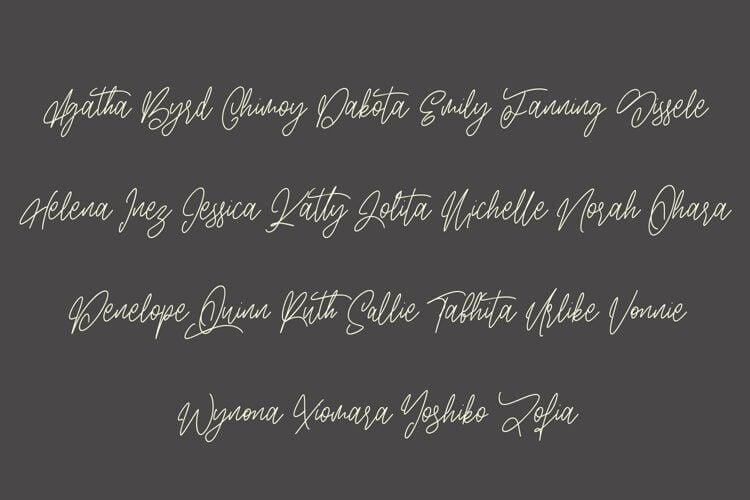 Agatha Byrd Chimoy Dakota Emily Fanning Gissele
Helena Inez Jessica Kattly Lolita Michelle Norah Ohara
Penelope Quinn Ruth Sallie Tabhita Urlike Vonnie
Wynona Xiomara Yoshiko Zofia